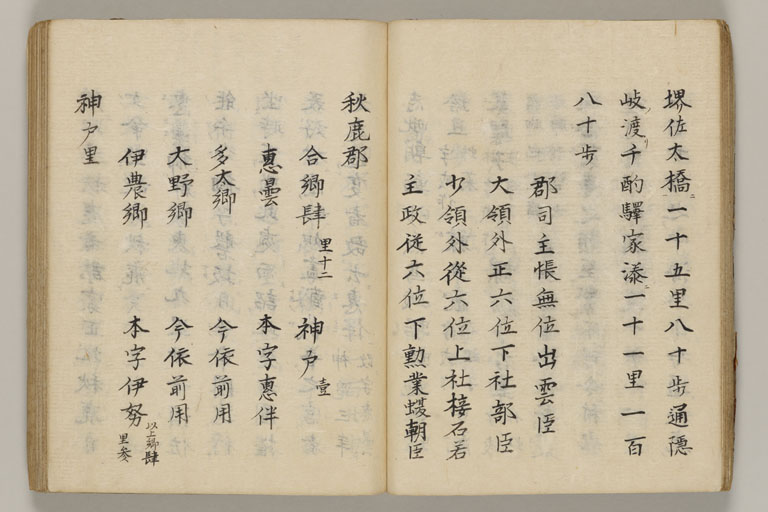 堺佐太橋ニ一十五里八十歩通隠
岐渡千酌驛家湊ニ一十一里一百
八十歩
郡司主帳無位出雲臣
大領外正六位下社部臣
少領外従六位上社接石君
主政従六位下勲業蝮朝臣
秋鹿郡
合郷肆 里十二 神戸壹
恵曇 本字恵伴
多太郷 今依前用
大野郷 今依前用
伊農郷 本字伊努 以上郷肆里参
神戸里